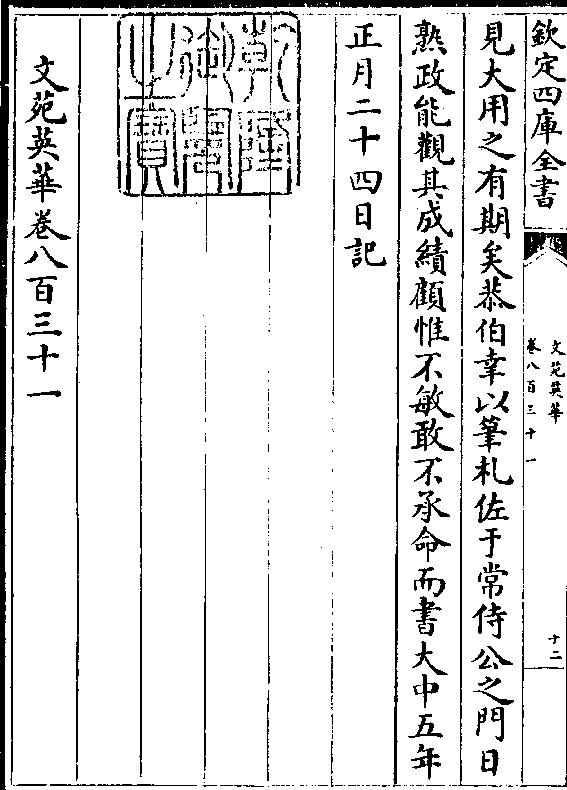 欽定四庫全書
文苑英華
卷八百三十一
十二
見大用之有期矣恭伯幸以筆札佐于常侍公之門日
熟政能觀其成績顧惟不敏敢不承命而書大中五年
正月二十四日記
乾隆御覽之寶
文苑英華卷八百三十一